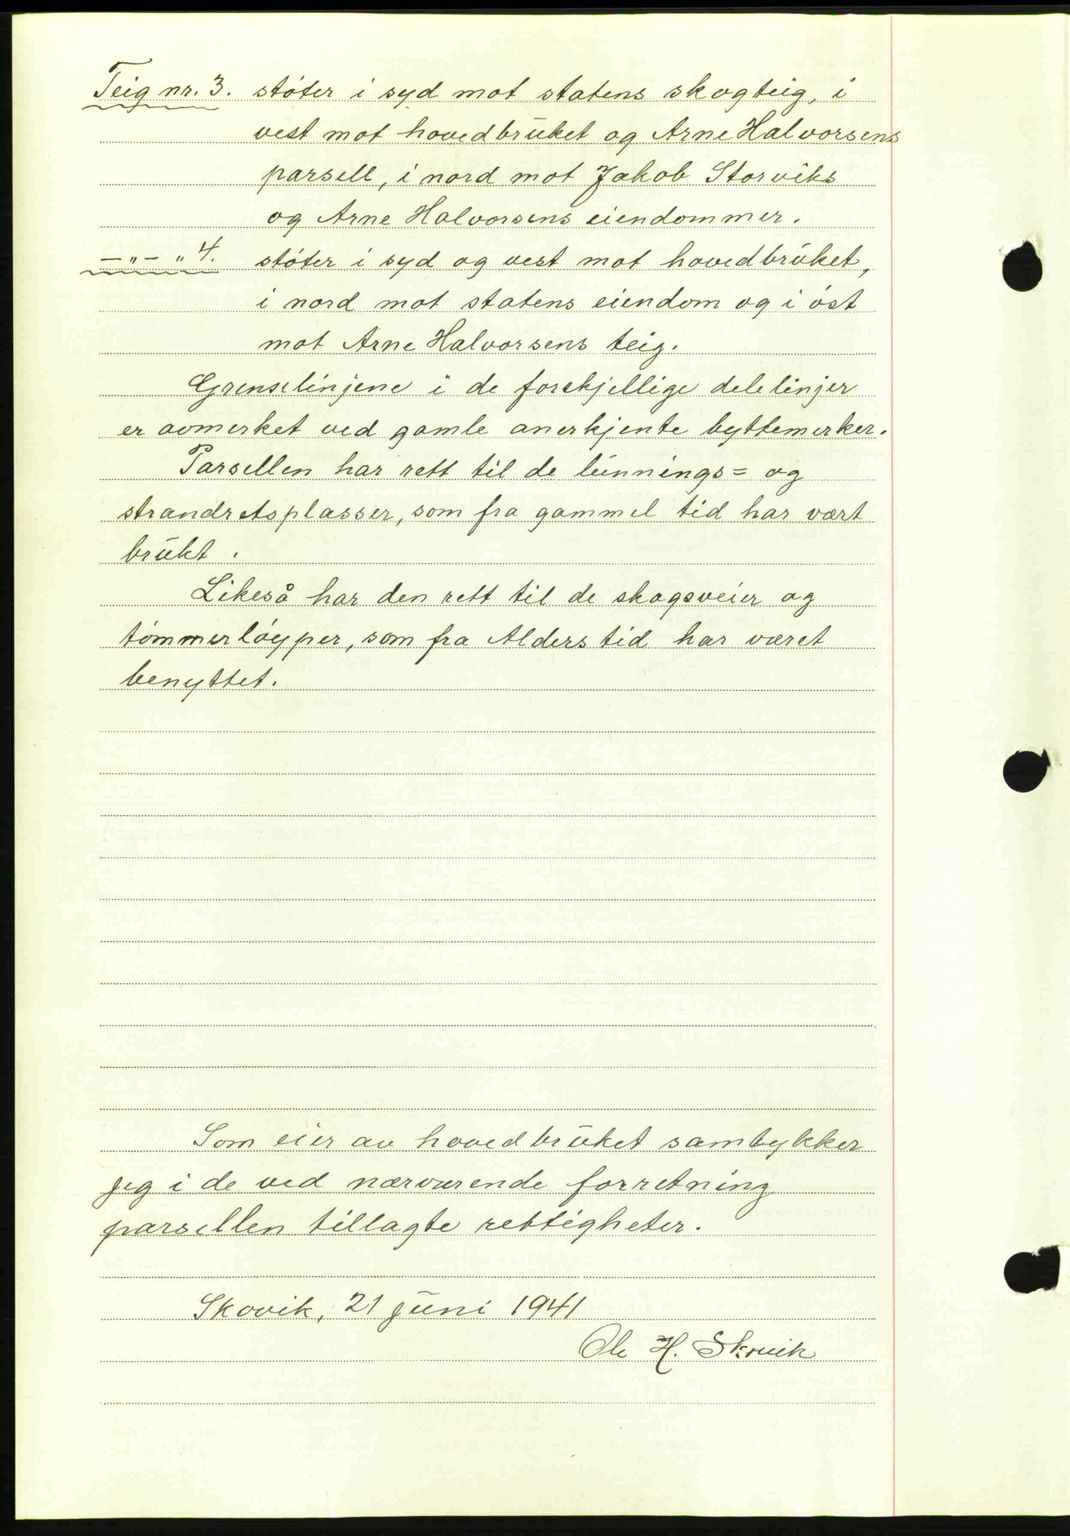 Teig nr. 3. støter i syd mot statens skogteig, i
vest mot hovedbruket og Arne Halvorsens
parsell, i nord mot Jakob Storviks
og Arne Halvorsens eiendommer.
—"— " 4. støter i syd og vest mot hovedbruket,
i nord mot statens eiendom og i øst
mot Arne Halvorsens teig.
Grenselinjene i de forskjellige delelinjer
er avmerket ved gamle anerkjente byttemerker.
Parsellen har rett til de lunnings= og
strandretsplasser, som fra gammel tid har vært
brukt.
Likeså har den rett til de skogsveier og
tømmerløyper, som fra Alders tid har været
benyttet.
Som eier av hovedbruket samtykker
jeg i de ved nærværende forretning
parsellen tillagte rettigheter.
Skovik, 21 juni 1941
Ole H. Skovik